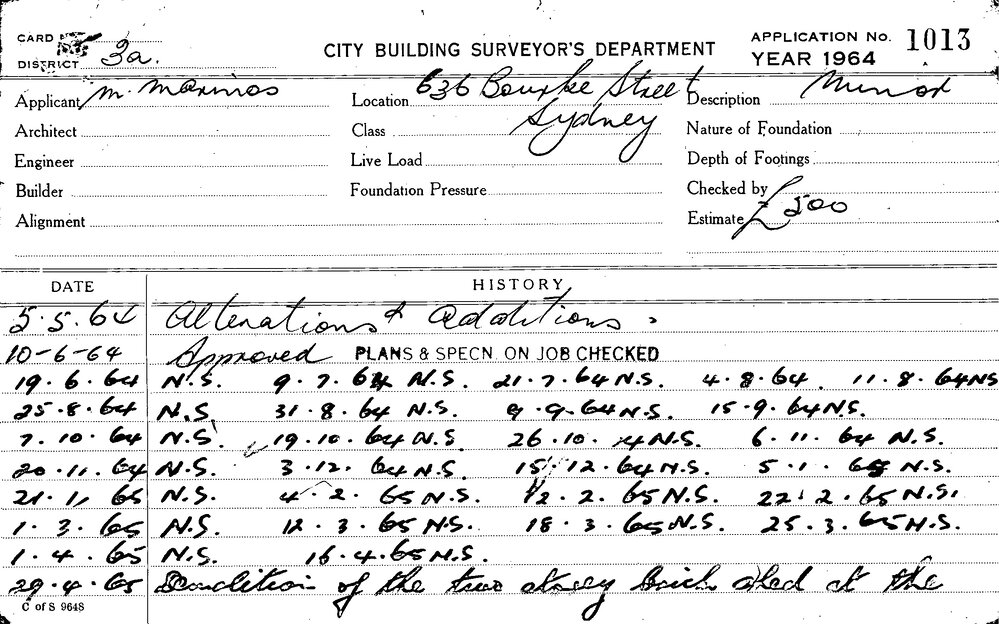 CARD
DISTRICT 3a.
CITY BUILDING SURVEYOR'S DEPARTMENT
APPLICATION No. 1013
YEAR 1964
Applicant M. Marinos
Location 636 Bourke Street
Sydney
Description Minor
Architect
Class
Nature of Foundation
Engineer
Live Load
Depth of Footings
Builder
Foundation Pressure
Checked by
Alignment
Estimate £500
DATE HISTORY
5.5.64 Alterations & Additions.
10-6-64 Approved PLANS & SPECN. ON JOB CHECKED
19.6.64 N.S. 9.7.64 N.S. 21.7.64 N.S. 4.8.64. 11.8.64 NS
25.8.64 N.S 31.8.64 N.S. 9.9.64 N.S. 15.9.64 NS.
7.10.64 N.S. 19.10.64 N.S 26.10.64 N.S. 6.11.64 N.S.
20.11.64 N.S. 3.12.64 N.S. 15.12.64 N.S. 5.1.65 N.S.
21.1.65 N.S. 4.2.65 N.S. 12.2.65 N.S. 22.2.65 N.S.
1.3.65 N.S. 12.3.65 N.S. 18.3.65 N.S. 25.3.65 N.S.
1.4.65 N.S. 16.4.65 N.S.
29.4.65 Demolition of the two storey brick shed at the
C of S 9648